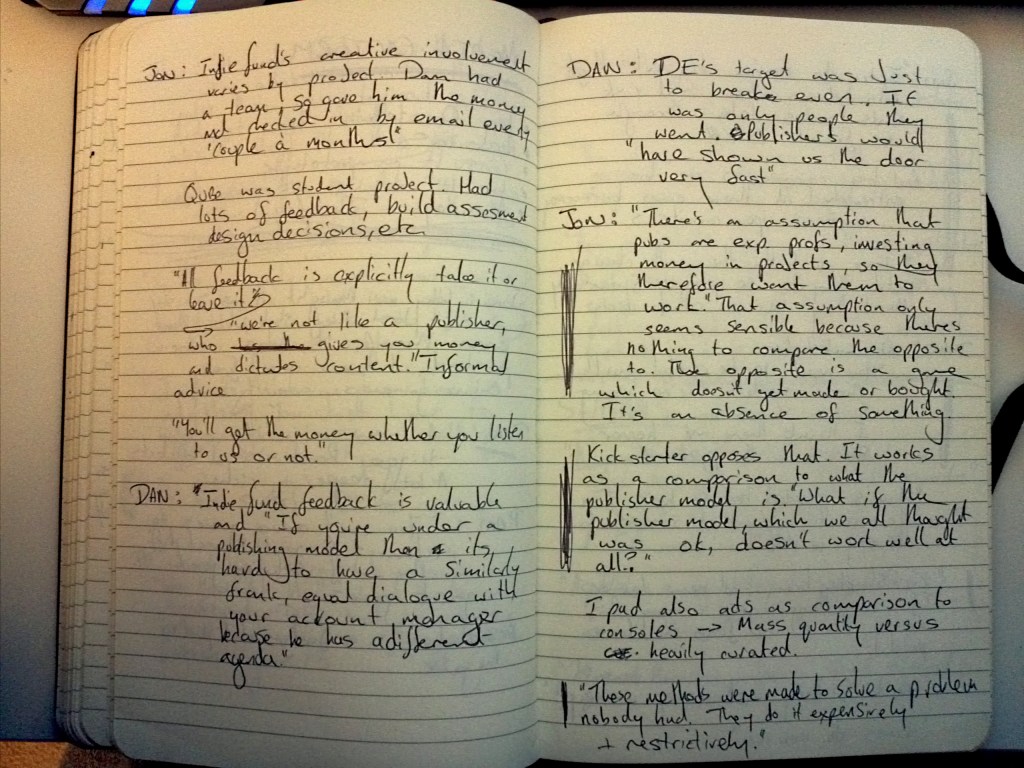 Jon: Indie fund's creative involvement
varies by project. Dan had
a team so gave him the money
and checked in by email every
'couple a months'
QUBE was student project. Had
lots of feedback, build assesment
design decisions, etc.
"All feedback is explicitly take it or
leave it"
→ "we're not like a publisher,
who gives you money
and dictates content." Informal
advice
"You'll get the money whether you listen
to us or not."
DAN: "Indie fund feedback is valuable
and "If you're under a
publishing model then its
hard to have a similarly
frank, equal dialogue with
your account manager
because he has a different
agenda."
DAN: DE's target was just
to break even. It
was only people they
went. Publishers would
"have shown us the door
very fast"
Jon: "There's an assumption that
pubs are exp. profs, investing
money in projects, so they
therefore want them to
work." That assumption only
seems sensible because theres
nothing to compare the opposite
to. The opposite is a game
which doesn't get made or bought.
It's an absence of something.
Kickstarter opposes that. It works
as a comparison to what the
publisher model is "What if the
publisher model, which we all thought
was ok, doesn't work well at
all?"
Ipad also ads as comparison to
consoles → Mass quantity versus
heavily curated.
"These methods were made to solve a problem
nobody had. They do it expensively
+ restrictively."